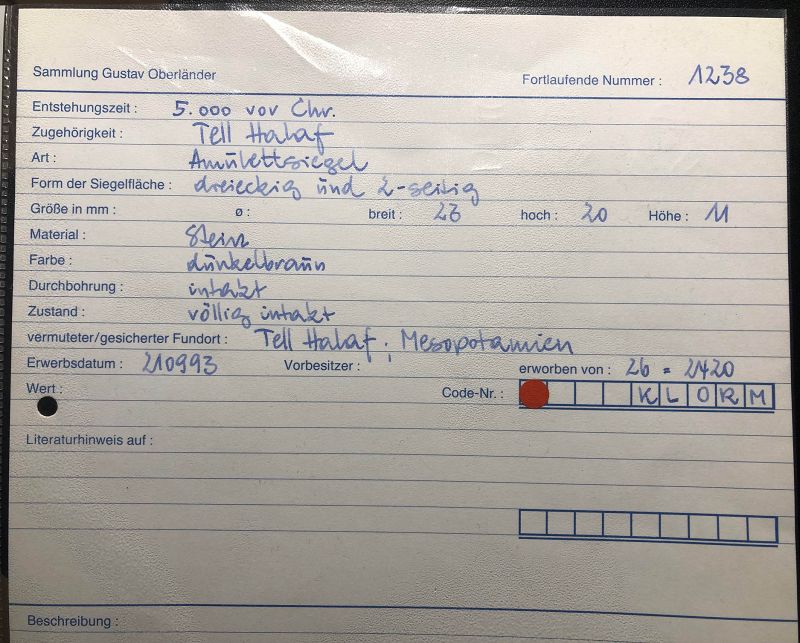 Sammlung Gustav Oberländer Fortlaufende Nummer : 1238
Entstehungszeit : 5.000 vor Chr.
Zugehörigkeit : Tell Halaf
Art : Amulettsiegel
Form der Siegelfläche : dreieckig und 2-seitig
Größe in mm : ø : breit : 23 hoch : 20 Höhe : 11
Material : Stein
Farbe : dunkelbraun
Durchbohrung : intakt
Zustand : völlig intakt
vermuteter/gesicherter Fundort : Tell Halaf ; Mesopotamien
Erwerbsdatum : 210993 Vorbesitzer : erworben von : 26 = 2420
Wert : Code-Nr. : K L O R M
Literaturhinweis auf :
Beschreibung :